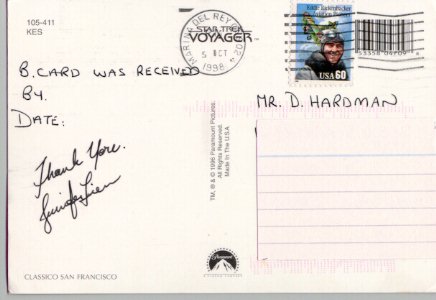 105-411
KES
STAR TREK
VOYAGER
MARINA DEL REY CA 902
5 OCT
1998
Eddie Rickenbacker
Aviation Pioneer
USA 60
B. CARD WAS RECEIVED
BY.
DATE:
MR. D. HARDMAN
Thank You.
® & © 1996 Paramount Pictures.
All Rights Reserved.
Made In The U.S.A
Paramount
CLASSICO SAN FRANCISCO